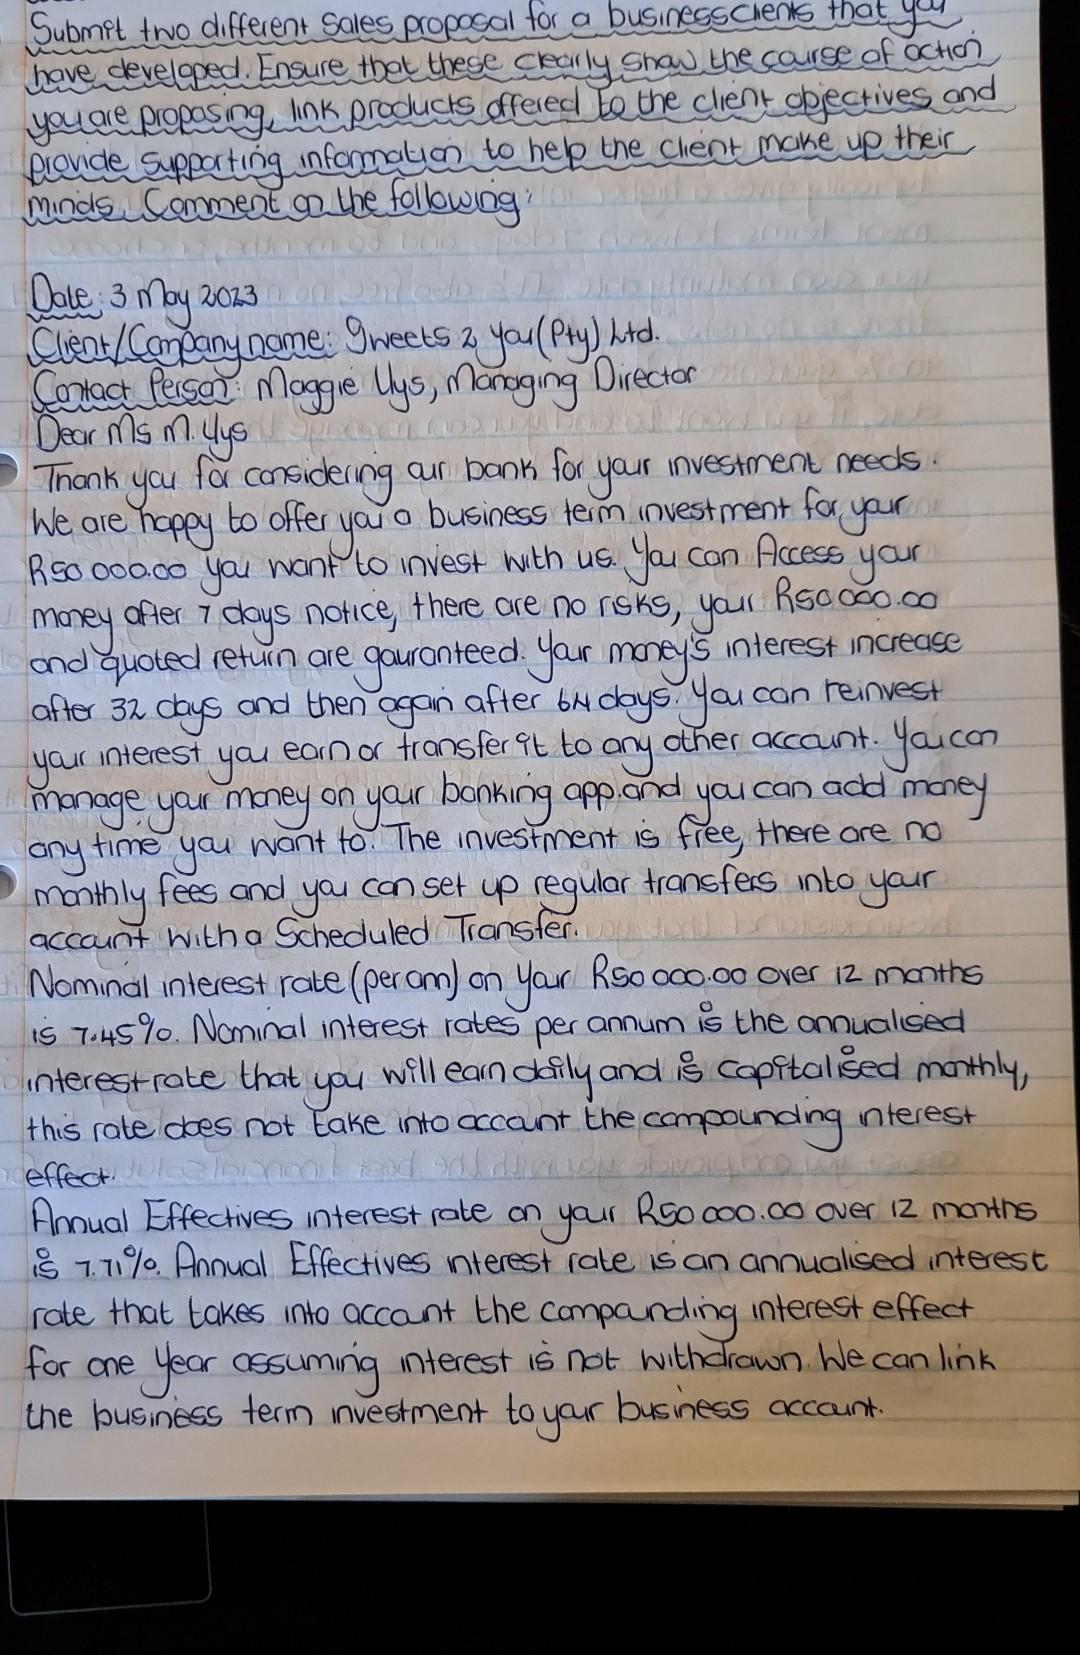 Submit two different Sales proposal for a business clients that you
have developed. Ensure that these clearly show the course of action
you are proposing, link products offered to the client objectives and
provide supporting information to help the client make up their
minds. Comment on the following:
Date: 3 May 2023
Client/Company name: Sweets 2 you (Pty) Ltd.
Contact Person: Maggie Uys, Managing Director
Dear Ms M. Uys
Thank you for considering our bank for your investment needs.
We are happy to offer you a business term investment for your
R50 000.00 you want to invest with us. You can Access your
money after 7 days notice, there are no risks, your R50 000.00
and quoted return are gauranteed. Your money's interest increase
after 32 days and then again after 64 days. You can reinvest
your interest you earn or transfer it to any other account. You can
manage your money on your banking app and you can add money
any time you want to. The investment is free, there are no
monthly fees and you can set up regular transfers into your
account with a Scheduled Transfer.
Nominal interest rate (per am) on your R50 000.00 over 12 months
is 7.45%. Nominal interest rates per annum is the annualised
interest rate that you will earn daily and is capitalised monthly,
this rate does not take into account the compounding interest
effect.
Annual Effectives interest rate on your R50 000.00 over 12 months
is 7.71%. Annual Effectives interest rate is an annualised interest
rate that takes into account the compounding interest effect
for one year assuming interest is not withdrawn. We can link
the business term investment to your business account.